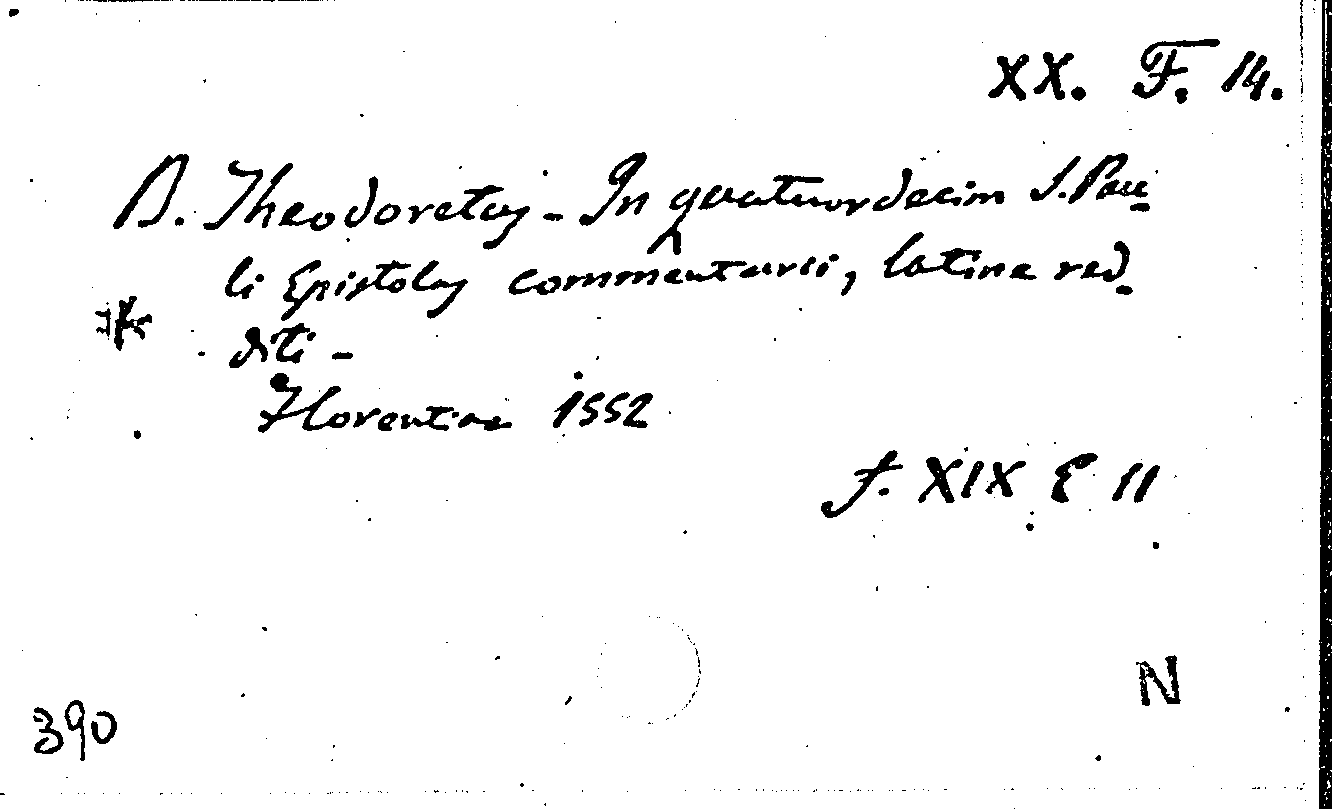 XX. F. 14.
B. Theodoretus - In quatuordecim S. Pau-
li Epistolas commentarii, latine red-
diti -
*
Florentiae 1552
f. XIX E 11
N
390